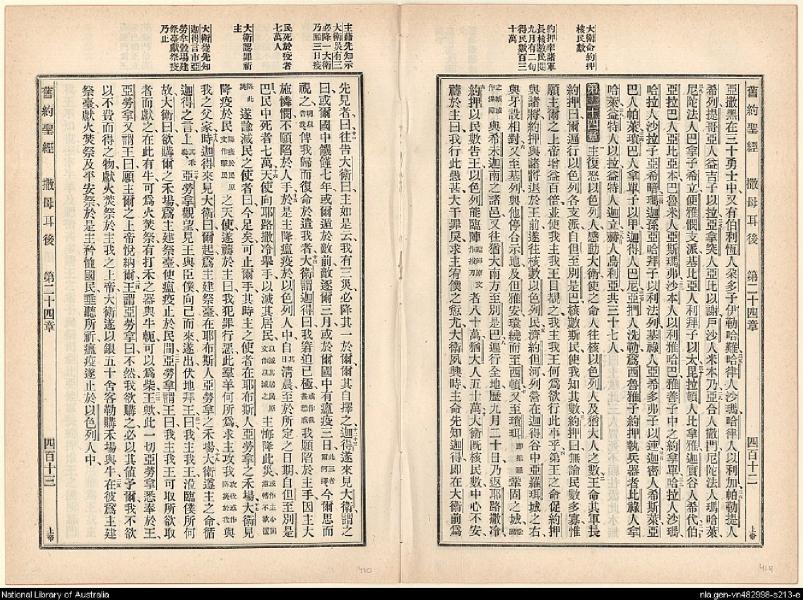 大衛命約押
核民數
約押率諸軍
長核數民閱
九月有二旬
得民數百三
十萬
舊約聖經 撒母耳後 第二十四章 四百十二 上帝
亞撒黑在三十勇士中又有伯利恆人朶多子伊勒哈難哈律人沙瑪哈律人以利加帕勒提人
希列提哥亞人益吉子以拉亞拿突人亞比以謝戶沙人米本乃亞合人撒們尼陀法人瑪哈萊
尼陀法人巴拿子希立便雅憫支派基比亞人利拜子以太比拉頓人比拿雅迦實谷人希代
亞拉巴人亞比亞本巴魯米人亞斯瑪弗沙本人以利雅哈巴雅善子中之約拿單哈拉人沙瑪
哈拉人沙拉子亞希暗瑪迦孫亞哈拜子以利法列基綠人亞希多弗子以連迦密人希斯萊亞
巴人帕萊瑣巴人拿單子以甲迦得人巴尼亞捫人洗勒為西魯雅子約押執兵器者比綠人拿
哈萊益特人以拉益特人迦立赫人烏利亞共三十七人
第二十四章 主復怒以色列人感動大衛使之命人往核以色列人及猶大人之數王命其軍長
約押曰爾遍行以色列各支派自但至別是巴核數斯民使我知其數約押曰無論民數多寡惟
願主爾之上帝增益百倍並使我主我王目覩之我主我王何為欲行此事乎第王之命促約押
與諸將約押與諸將退於王前遂往核數以色列民濟約但河列營在迦得谷中亞羅珥城之右
與牙設相對又至基列與他停合示地及但雅安環繞而至西頓又至瑣珥 鞏固之城
與希未迦南之諸邑又往猶大南方至別是巴遍行全地歷九月二十日乃返耶路撒冷
約押以民數告王以色列人能臨陣 者八十萬猶大人五十萬大衛既核民數中心不安
禱於主曰我行此愚甚大干罪戾求主宥僕之愆尤大衛夙興時主命先知迦得即在大衛前為
主藉先知示
大衛災有三
必降一大衛
乃願三日疫
民死於疫者
七萬人
大衛認罪於
主
大衛從先知
迦得言市亞
勞拿穀場建
祭臺獻祭疫
乃止
先見者曰往告大衛曰主如是云我有三災必降其一於爾爾其自擇之迦得遂來見大衛謂之
曰或爾國中饑饉七年或爾遁於敵前敵逐爾三月或於爾國中有瘟疫三日 今爾思而
視之 俾我歸而復命於遣我者大衛謂迦得曰我窘迫已極 我願陷於主手因主大
施憐憫不願陷於人手於是主降瘟疫於以色列人中自 清晨至於所定之日期自但至別是
巴民中死者七萬天使向耶路撒冷舉手以滅其居民 主悔降此災
遂諭滅民之使者曰今足矣可止爾手其時主之使者在耶布斯人亞勞拿之禾場大衛見
降疫於民 之天使遂禱於主曰我犯罪行惡此羣羊何所為求主攻我 與
我之父家時迦得來見大衛曰爾起為主建祭臺在耶布斯人亞勞拿之禾場大衛遵主之命循
迦得之言上 亞勞拿觀望見王與臣僕向己而來遂出伏地拜王曰我主我王涖臨僕所何
故大衛曰欲購爾之禾場為主建祭臺使瘟疫止於民間亞勞拿謂王曰我主我王可取所欲取
者而獻之在此有牛可為火焚祭有打禾之器與牛軛可以為柴王歟此一切亞勞拿悉奉於王
亞勞拿又謂王曰願主爾之上帝悅納爾王謂亞勞拿曰不然我欲購之必以其值予爾我不欲
以不費而得之物獻火焚祭於主我之上帝大衛遂以銀五十舍客勒購禾場與牛在彼為主建
祭臺獻火焚祭及平安祭於是主矜憐國民垂聽所祈瘟疫遂止於以色列人中
舊約聖經 撒母耳後 第二十四章 四百十三 上帝
National Library of Australia
nla.gen-vn482998-s213-e